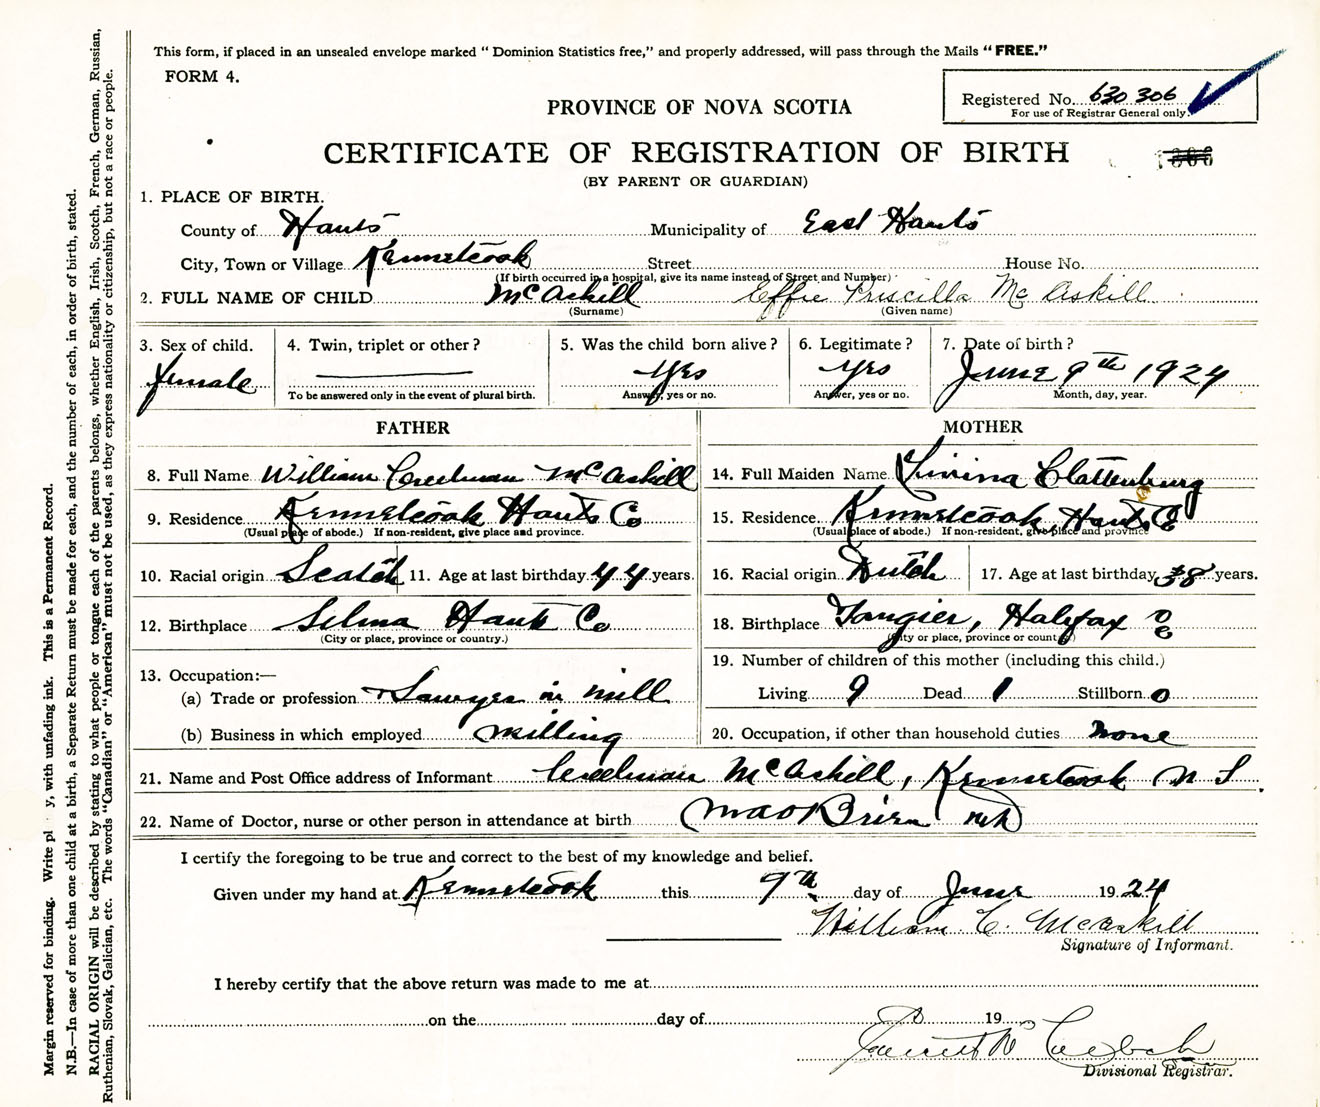 This form, if placed in an unsealed envelope marked "Dominion Statistics free," and properly addressed, will pass through the Mails "FREE."
FORM 4.
Registered No. 630 306
For use of Registrar General only.
PROVINCE OF NOVA SCOTIA
CERTIFICATE OF REGISTRATION OF BIRTH
(BY PARENT OR GUARDIAN)
1. PLACE OF BIRTH.
County of Hants Municipality of East Hants
City, Town or Village Kennetcook Street House No.
(If birth occurred in a hospital, give its name instead of Street and Number)
2. FULL NAME OF CHILD McAskill Effie Priscilla McAskill
(Surname) (Given name)
3. Sex of child. 4. Twin, triplet or other? 5. Was the child born alive? 6. Legitimate? 7. Date of birth?
female Yes Yes June 9th 1924
To be answered only in the event of plural birth. Answer, yes or no. Answer, yes or no. Month, day, year.
FATHER
8. Full Name William Creelman McAskill
9. Residence Kennetcook Hants Co
(Usual place of abode.) If non-resident, give place and province.
10. Racial origin Scotch 11. Age at last birthday 44 years.
12. Birthplace Selma Hants Co
(City or place, province or country.)
13. Occupation:—
(a) Trade or profession Sawyer in mill
(b) Business in which employed milling
MOTHER
14. Full Maiden Name Clattenburg
15. Residence Kennetcook Hants Co
(Usual place of abode.) If non-resident, give place and province
16. Racial origin Dutch 17. Age at last birthday 38 years.
18. Birthplace Tangier, Halifax Co
(City or place, province or country.)
19. Number of children of this mother (including this child.)
Living 9 Dead 1 Stillborn 0
20. Occupation, if other than household duties none
21. Name and Post Office address of Informant Creelman McAskill, Kennetcook N S
22. Name of Doctor, nurse or other person in attendance at birth
I certify the foregoing to be true and correct to the best of my knowledge and belief.
Given under my hand at Kennetcook this 9th day of June 1924
William C. McAskill
Signature of Informant.
I hereby certify that the above return was made to me at
on the day of 19
Divisional Registrar.
Margin reserved for binding. Write pl y, with unfading ink. This is a Permanent Record.
N.B.—In case of more than one child at a birth, a Separate Return must be made for each, and the number of each, in order of birth, stated.
RACIAL ORIGIN will be described by stating to what people or tongue each of the parents belongs, whether English, Irish, Scotch, French, German, Russian,
Ruthenian, Slovak, Galician, etc. The words "Canadian" or "American" must not be used, as they express nationality or citizenship, but not a race or people.